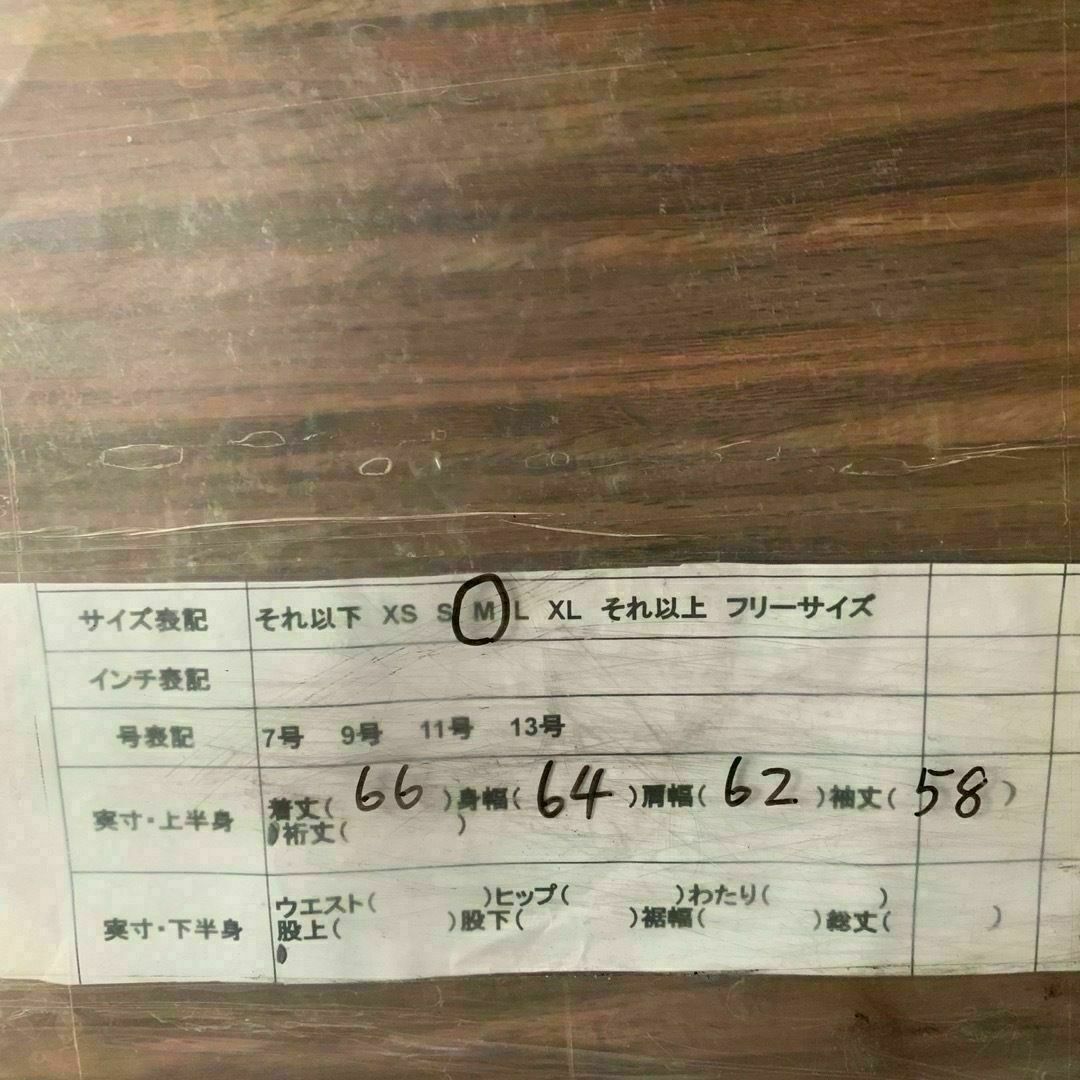 サイズ表記 それ以下 XS S M L XL それ以上 フリーサイズ
インチ表記
号表記 7号 9号 11号 13号
実寸・上半身 着丈( 66 )身幅( 64 )肩幅( 62 )袖丈( 58 )
裄丈( )
実寸・下半身 ウエスト( )ヒップ( )わたり( )
股上( )股下( )裾幅( )総丈( )